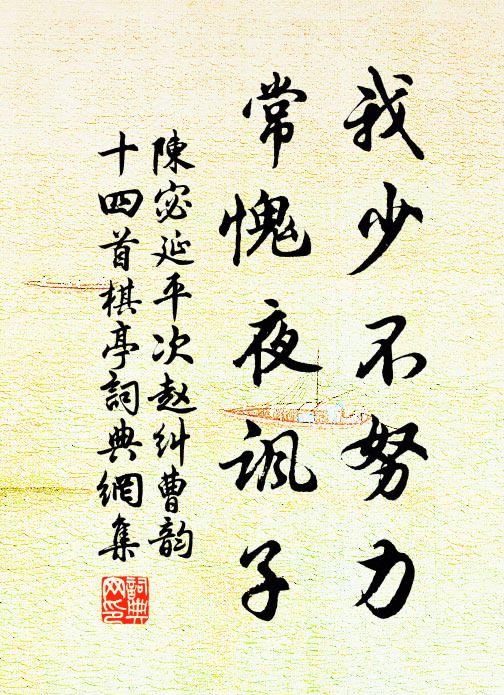 我少不努力
常愧夜諷子
陳宓延平次赵糾曹韵
十四首棋亭詞典網集
詞典
网印